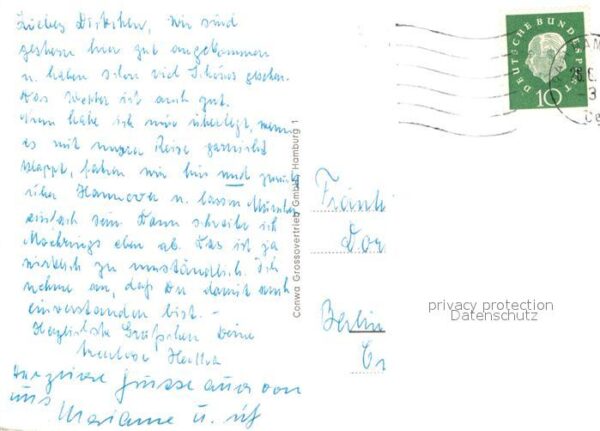 Liebes Dörtchen, wir sind
gestern hier gut angekommen
u. haben schon viel Schönes gesehen.
Das Wetter ist auch gut.
Nun habe ich mir überlegt, wenn
es mit unserer Reise garnicht
klappt, fahren wir hin und zurück
über Hannover u. lassen Münster
einfach sein. Dann schreibe ich
Moehrings eben ab. Das ist ja
wirklich zu umständlich. Ich
nehme an, daß Du damit auch
einverstanden bist. –
Herzlichste Grüßchen Deine
Hella
Grüsse auch von
uns Marianne u.
Conwa Grossovertrieb GmbH, Hamburg 1
DEUTSCHE BUNDESPOST
10
Fräul
Dor
Berlin
privacy protection
Datenschutz